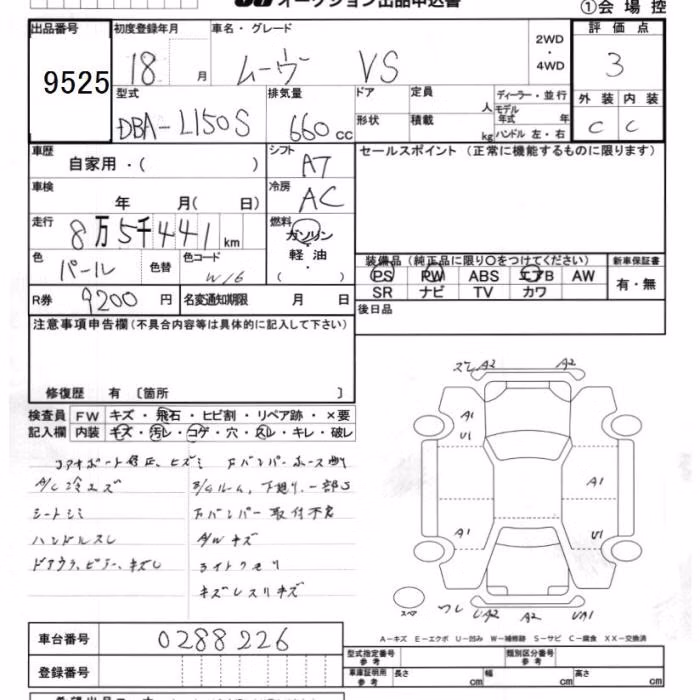 オークション出品申込書
①会場控
出品番号 9525
初度登録年月 18 月
車名・グレード ムーヴ VS
2WD・4WD
評価点 3
型式 DBA-L150S
排気量 660cc
ドア 形状
定員 人 積載 kg
ディーラー・並行
モデル年式 年
ハンドル 左・右
外装 C 内装 C
車歴 自家用・( )
シフト A7
セールスポイント（正常に機能するものに限ります）
車検 年 月( 日)
冷房 AC
走行 8万5千441km
燃料 ガソリン 軽油 ( )
色 パール 色替
色コード W16
装備品（純正品に限り〇をつけてください）
新車保証書 有・無
PS PW ABS エアB AW
SR ナビ TV カワ
R券 9200円
名変通知期限 月 日
後日品
注意事項申告欄(不具合内容等は具体的に記入して下さい)
修復歴 有〔箇所 〕
検査員記入欄
FW キズ・飛石・ヒビ割・リペア跡・×要
内装 キズ・汚レ・コゲ・穴・スレ・キレ・破レ
A/C冷エズ
シートシミ
ハンドルスレ
Fバンパー取付不良
A/Wキズ
ライトクモリ
A2 A2
A1
U1
A1
A1 U1
UA2 A2 UA1
A－キズ E－エクボ U－凹み W－補修跡 S－サビ C－腐食 XX－交換済
車台番号 0288226
登録番号
型式指定番号 参考
類別区分番号 参考
車庫証明用 参考 長さ cm 幅 cm 高さ cm